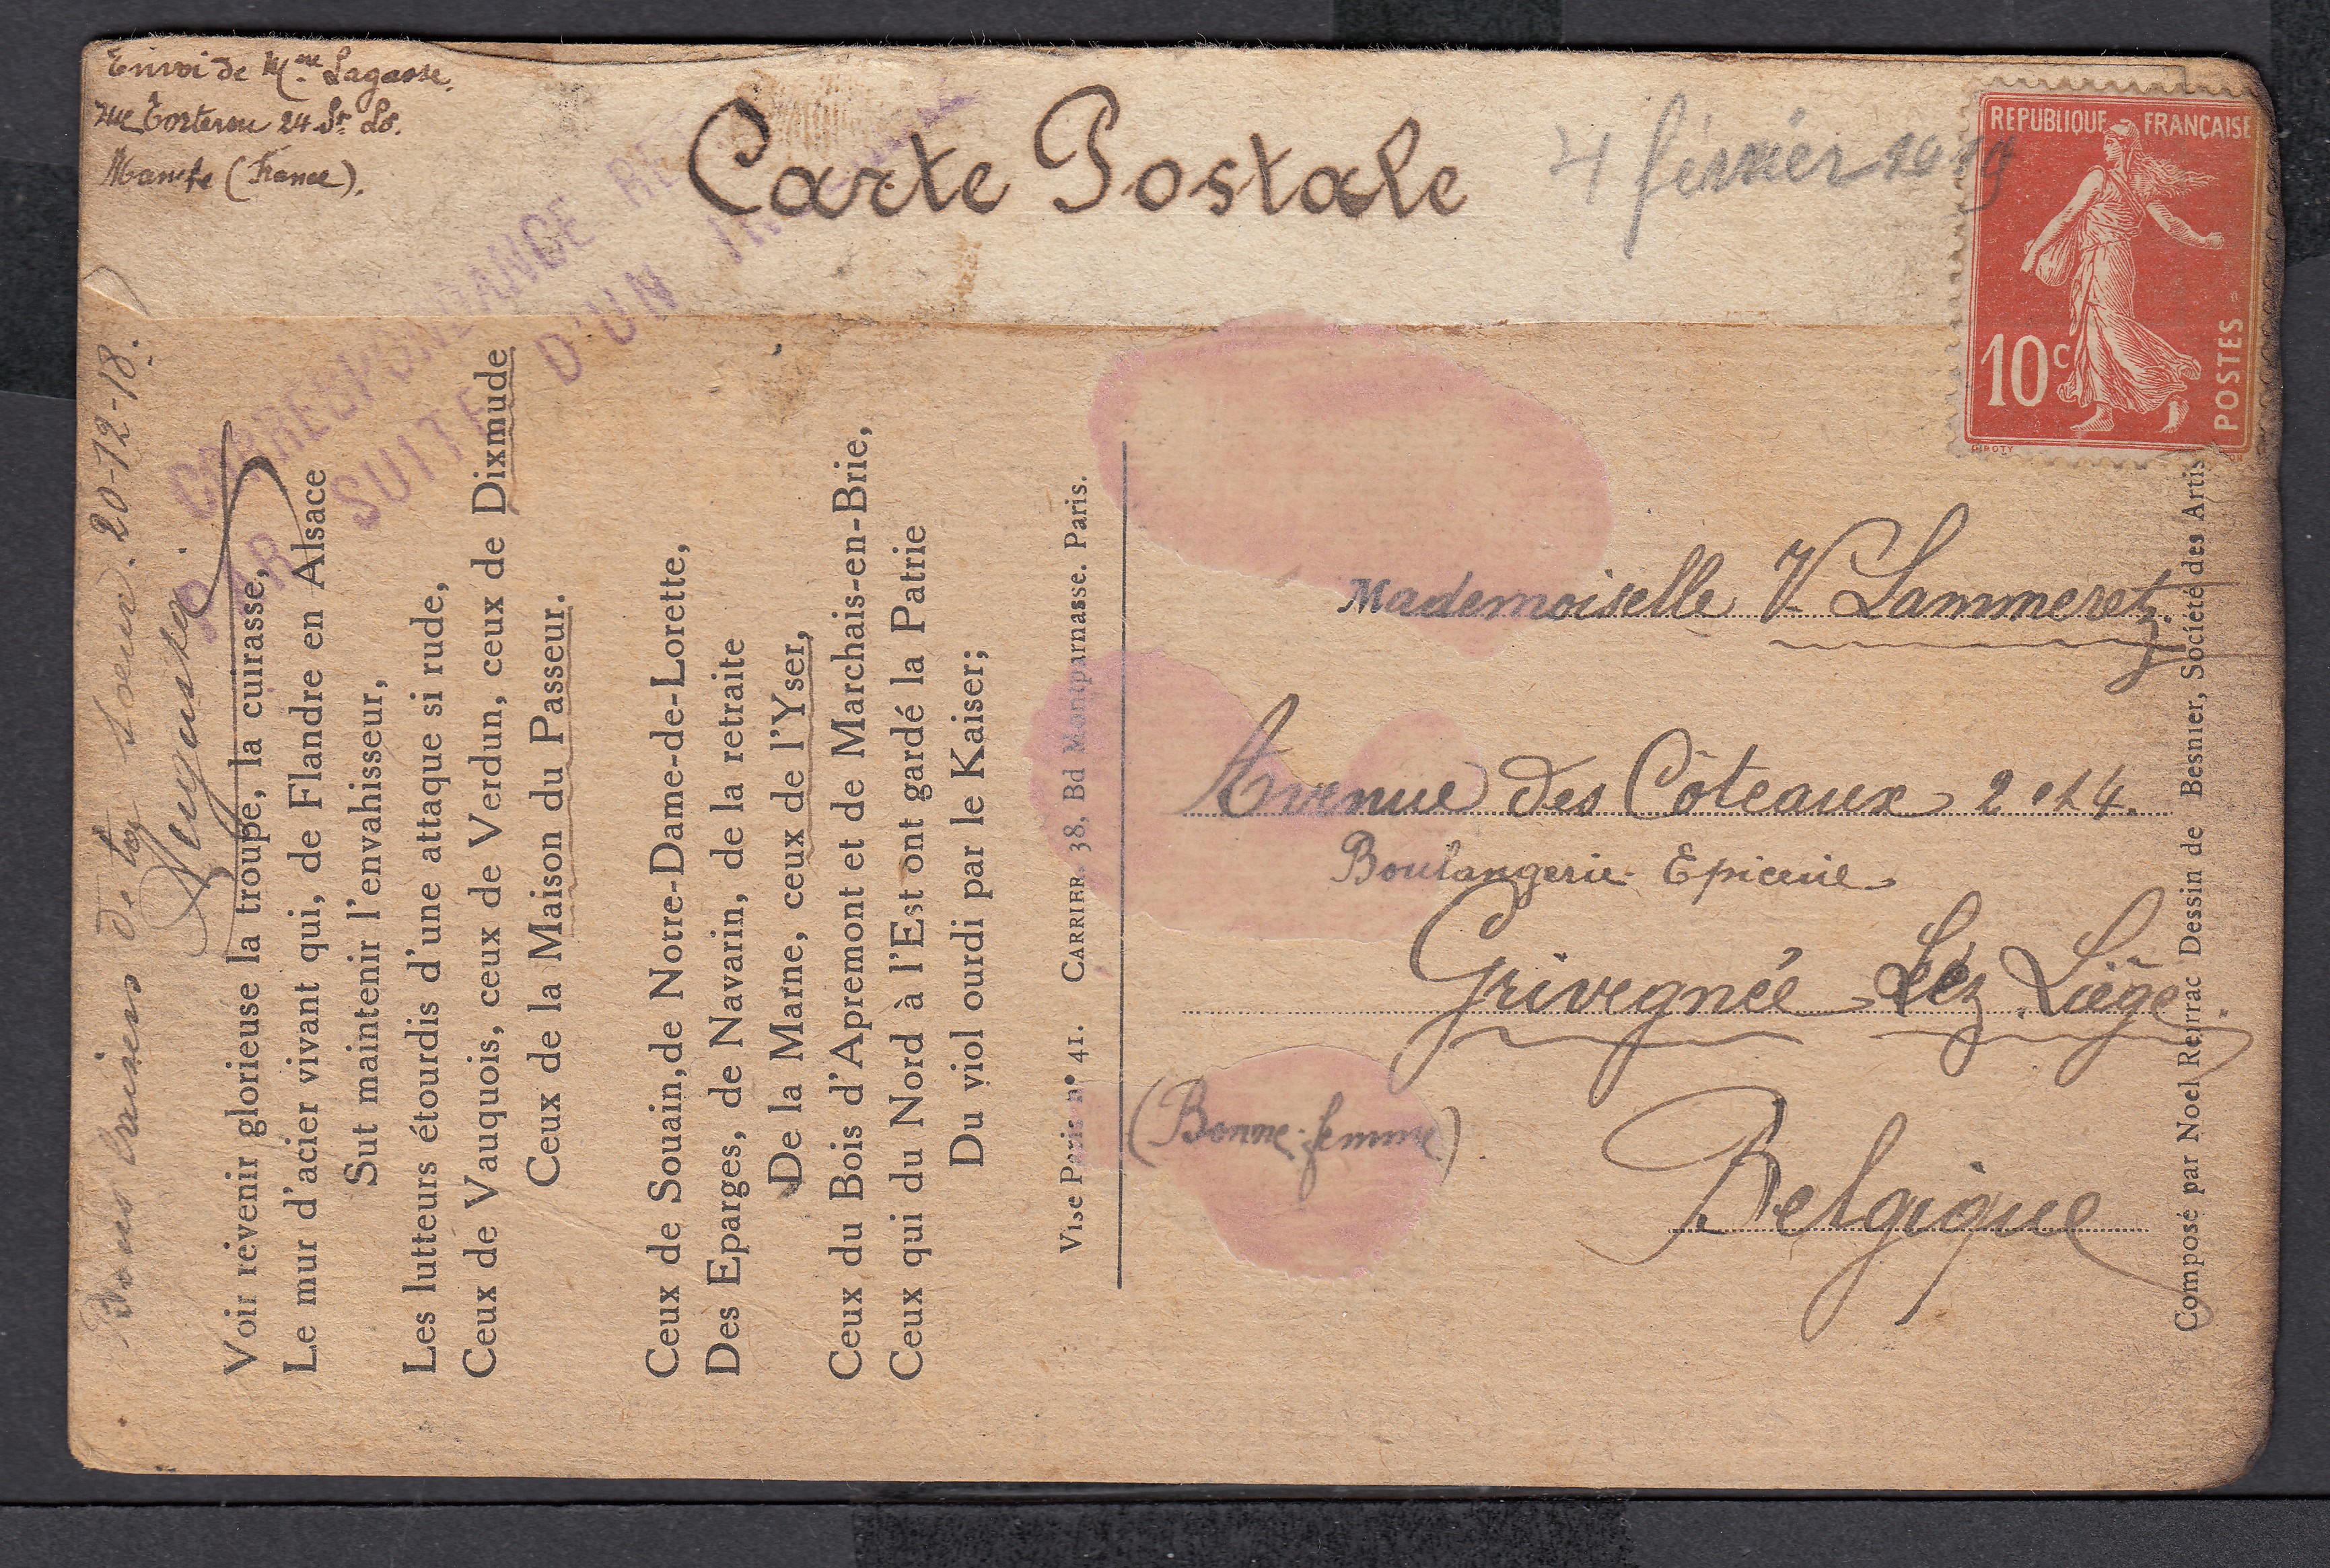 Envoi de Mme Lagasse.
rue Torteron 24 St Lo.
Manche (France).
Carte Postale
4 février 1919
REPUBLIQUE FRANÇAISE
10c
POSTES
CORRESPONDANCE RE
PAR SUITE D'UN
Bons baisers de ta soeur. 20-12-18.
Voir revenir glorieuse la troupe, la cuirasse,
Le mur d'acier vivant qui, de Flandre en Alsace
Sut maintenir l'envahisseur,
Les lutteurs étourdis d'une attaque si rude,
Ceux de Vauquois, ceux de Verdun, ceux de Dixmude
Ceux de la Maison du Passeur.
Ceux de Souain, de Notre-Dame-de-Lorette,
Des Eparges, de Navarin, de la retraite
De la Marne, ceux de l'Yser,
Ceux du Bois d'Apremont et de Marchais-en-Brie,
Ceux qui du Nord à l'Est ont gardé la Patrie
Du viol ourdi par le Kaiser;
Vise Paris n° 41. CARRIER. 38, Bd Montparnasse. Paris.
Mademoiselle V Lammeretz.
Avenue des Côteaux 2 et 4.
Boulangerie Epicerie
Grivegnée Lez Liège.
(Bonne-femme).
Belgique
Composé par Noel Reirrac Dessin de Besnier, Société des Artis